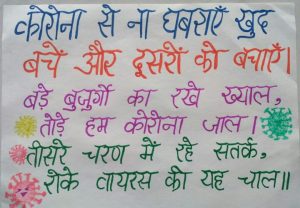 कोरोना से ना घबराएँ खुद
बचें और दूसरों को बचाएँ।
बड़े बुजुर्गो का रखे ख्याल,
तोड़े हम कोरोना जाल।
तीसरे चरण में रहे सतर्क,
रोके वायरस की यह चाल॥